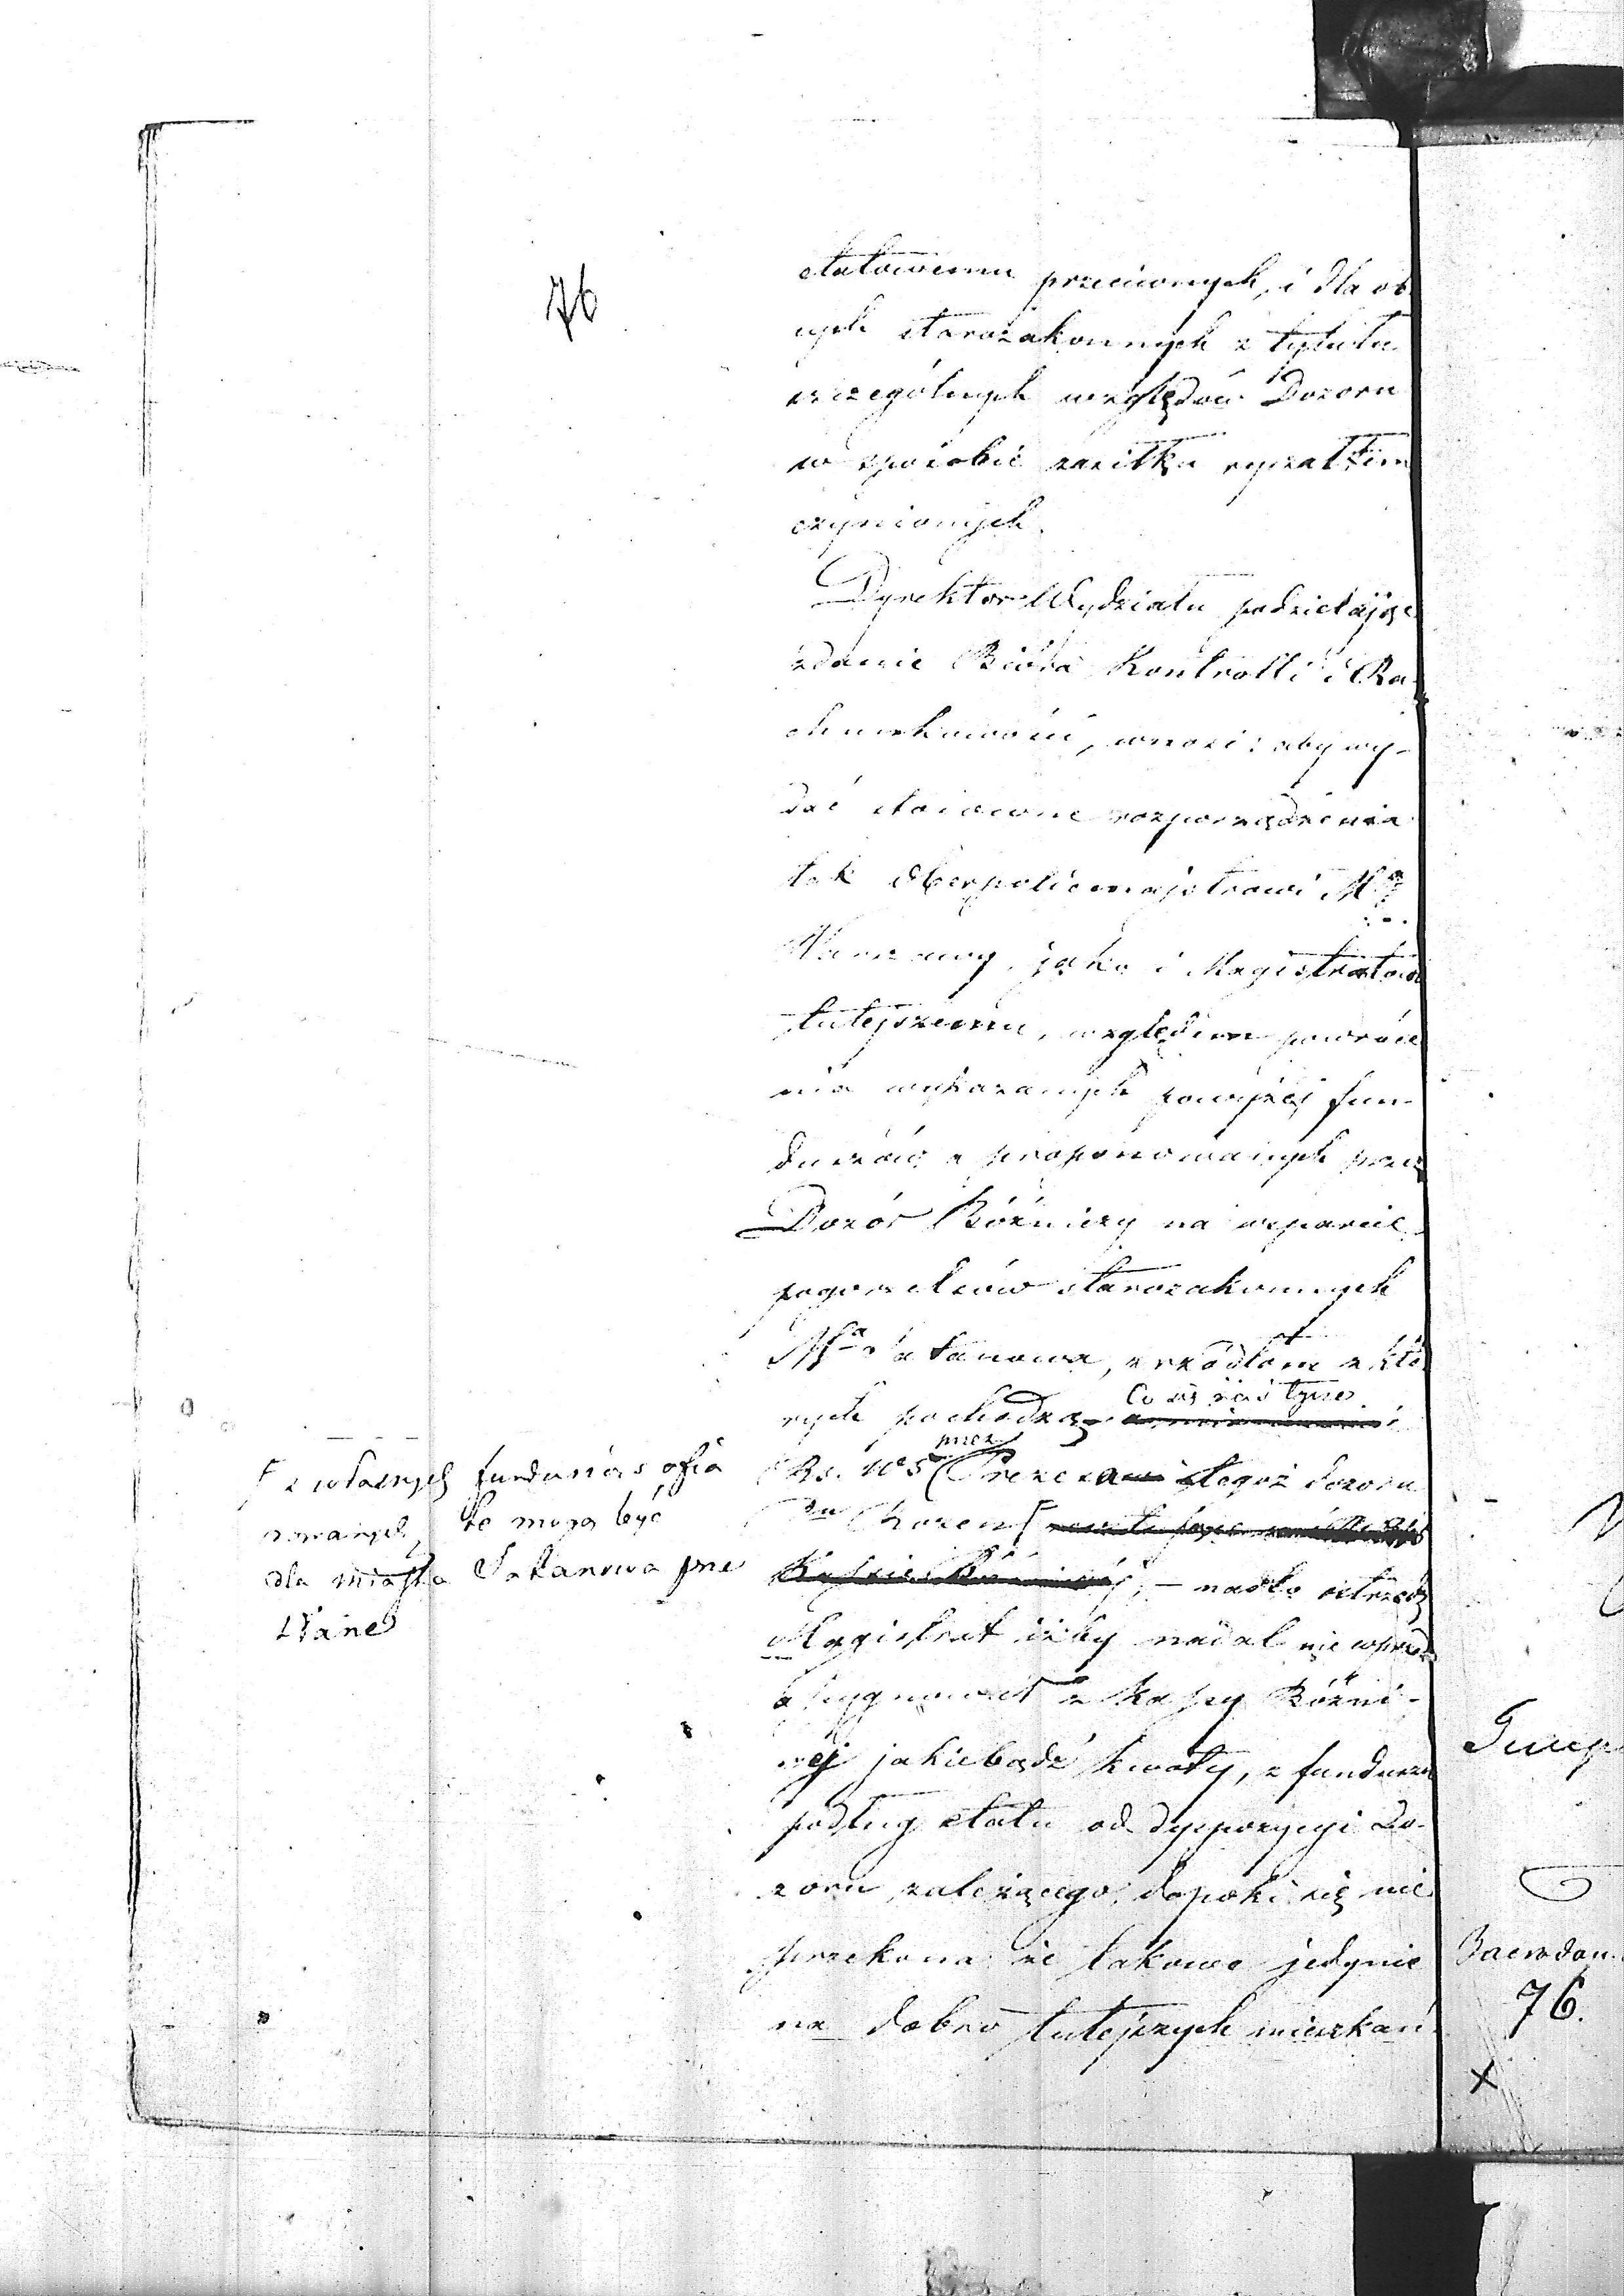 76
etatowemu przeciwnych, i dla ob
cych starozakonnych z tytułu
szczególnych względów Dozoru
w sposobie zasiłku ryczałtem
czynionych.
Dyrektor Wydziału podzielając
zdanie Biura Kontrolli i Ra-
chunkowości, wnosi: aby wy-
dać stosowne rozporządzenia
tak Oberpolicmajstrowi Mta
Warszawy, jako i Magistratowi
tutejszemu, względem powróce
nia wykazanych powyżej fun-
duszów, a proponowanych przez
Dozór Bóźniczy na wsparcie
pogorzelców starozakonnych
Mta Satanowa, źródłom z któ
rych pochodzą Co się zaś tycze
Rs. 105 przez Prezesa tegoż dozoru
Chozen
nadto ostrzedz
Magistrat iżby nadal nie wprzód
assygnował z kassy Bóźni-
nej jakiebądź kwoty, z funduszu
podług etatu od dyspozycyi Do-
zoru zależącego, dopóki się nie
przekona że takowe jedynie
na dobro tutejszych mieszkań
z własnych funduszów ofia
rowanych, te mogą być
dla miasta Satanowa prze
słane
76.
x